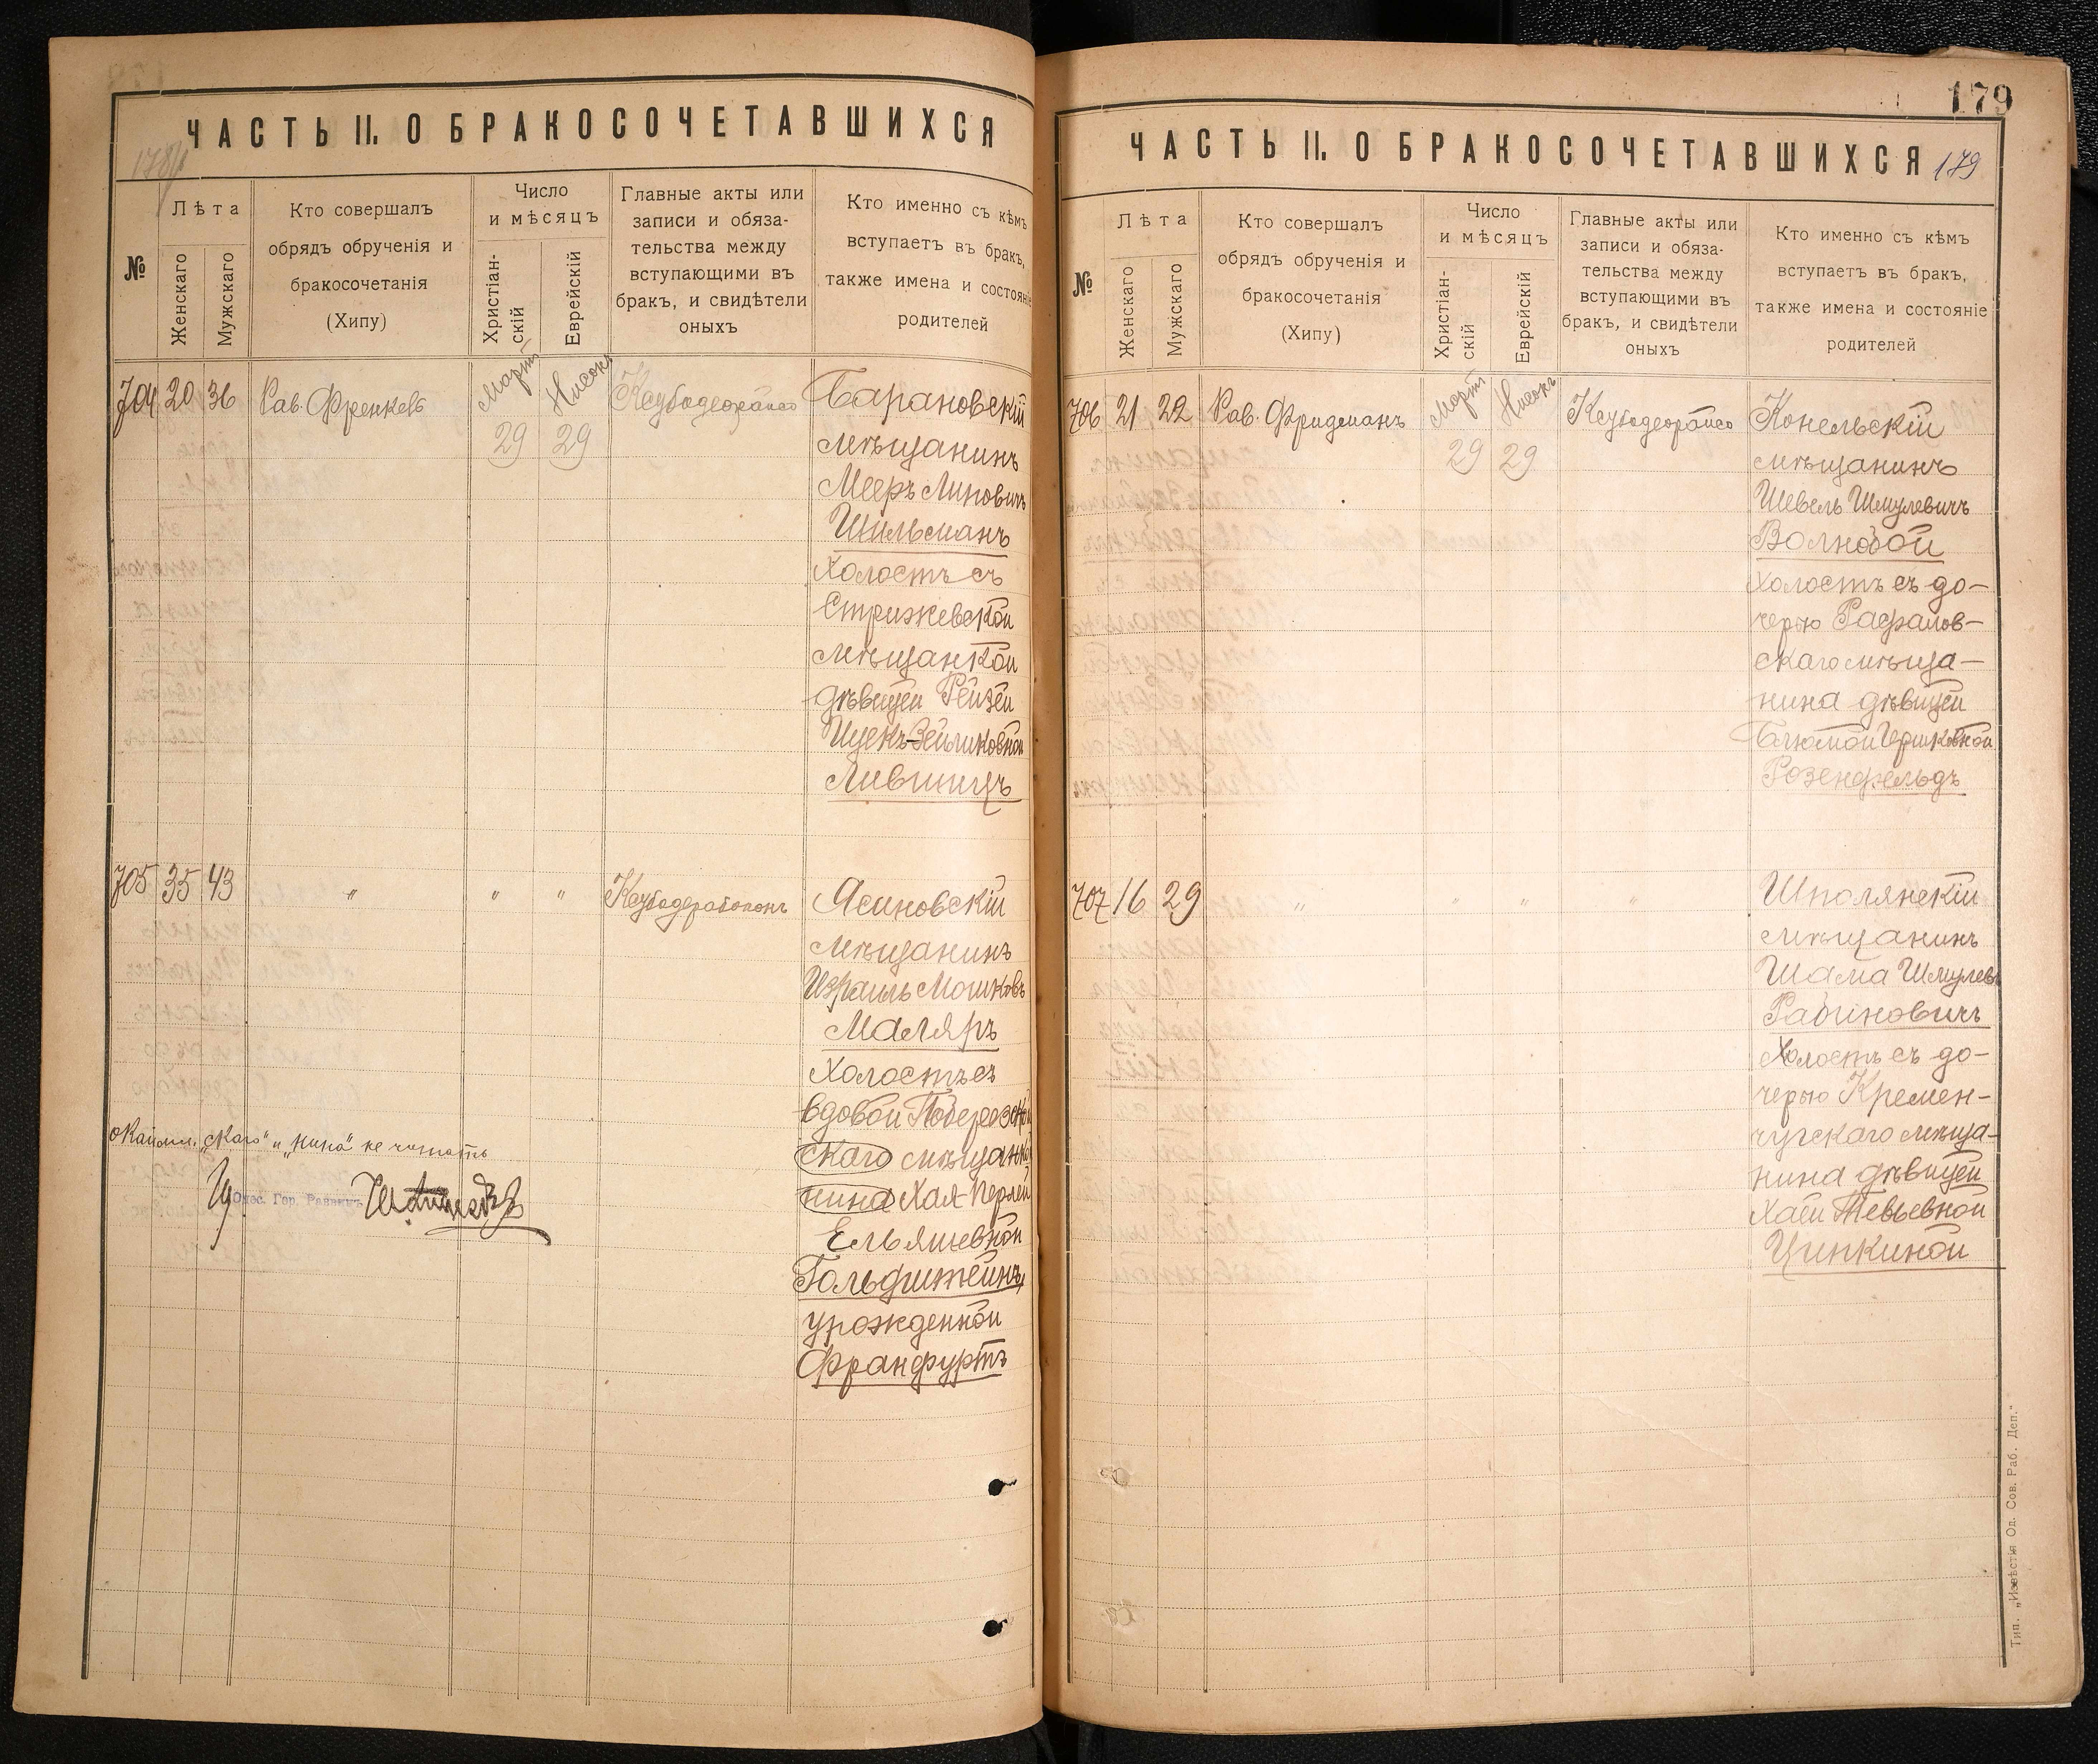 ЧАСТЬ II. О БРАКОСОЧЕТАВШИХСЯ
№
Лѣта
Женскаго
Мужскаго
Кто совершалъ
обрядъ обрученія и
бракосочетанія
(Хипу)
Число
и мѣсяцъ
Христіан-
скій
Еврейскій
Главные акты или
записи и обяза-
тельства между
вступающими въ
бракъ, и свидѣтели
оныхъ
Кто именно съ кѣмъ
вступаетъ въ бракъ,
также имена и состояніе
родителей
704 20 36 Рав. Френкель
Мартъ
29
Нисонъ
29
Барановскій
мѣщанинъ
Мееръ Липовичъ
Шильманъ
холостъ съ
Стрижевской
мѣщанкой
дѣвицей Рейзей
Ицекъ-Зейликовной
Лившицъ
705 35 43 " " "
Ясиновскій
мѣщанинъ
Израиль Мошковъ
Маляръ
холостъ съ
вдовой
скаго
нина Хая-Перлей
Ельяшевной
Гольдштейнъ,
урожденной
Франфуртъ
"скаго" и "нина" не читать
Одес. Гор. Раввинъ
179
ЧАСТЬ II. О БРАКОСОЧЕТАВШИХСЯ
179
№
Лѣта
Женскаго
Мужскаго
Кто совершалъ
обрядъ обрученія и
бракосочетанія
(Хипу)
Число
и мѣсяцъ
Христіан-
скій
Еврейскій
Главные акты или
записи и обяза-
тельства между
вступающими въ
бракъ, и свидѣтели
оныхъ
Кто именно съ кѣмъ
вступаетъ въ бракъ,
также имена и состояніе
родителей
706 21 22 Рав. Фридманъ
Мартъ
29
Нисонъ
29
Конельскій
мѣщанинъ
Шевель Шмулевичъ
Волновой
холостъ съ до-
черью Рафалов-
скаго мѣща-
нина дѣвицей
Блюмой Гершковной
Розенфельдъ
707 16 29 " " " "
Шполянскій
мѣщанинъ
Шама Шмулевъ
Рабиновичъ
холостъ съ до-
черью Кремен-
чугскаго мѣща-
нина дѣвицей
Хаей Тевьевной
Ципкиной
Тип. „Извѣстія Од. Сов. Раб. Деп."